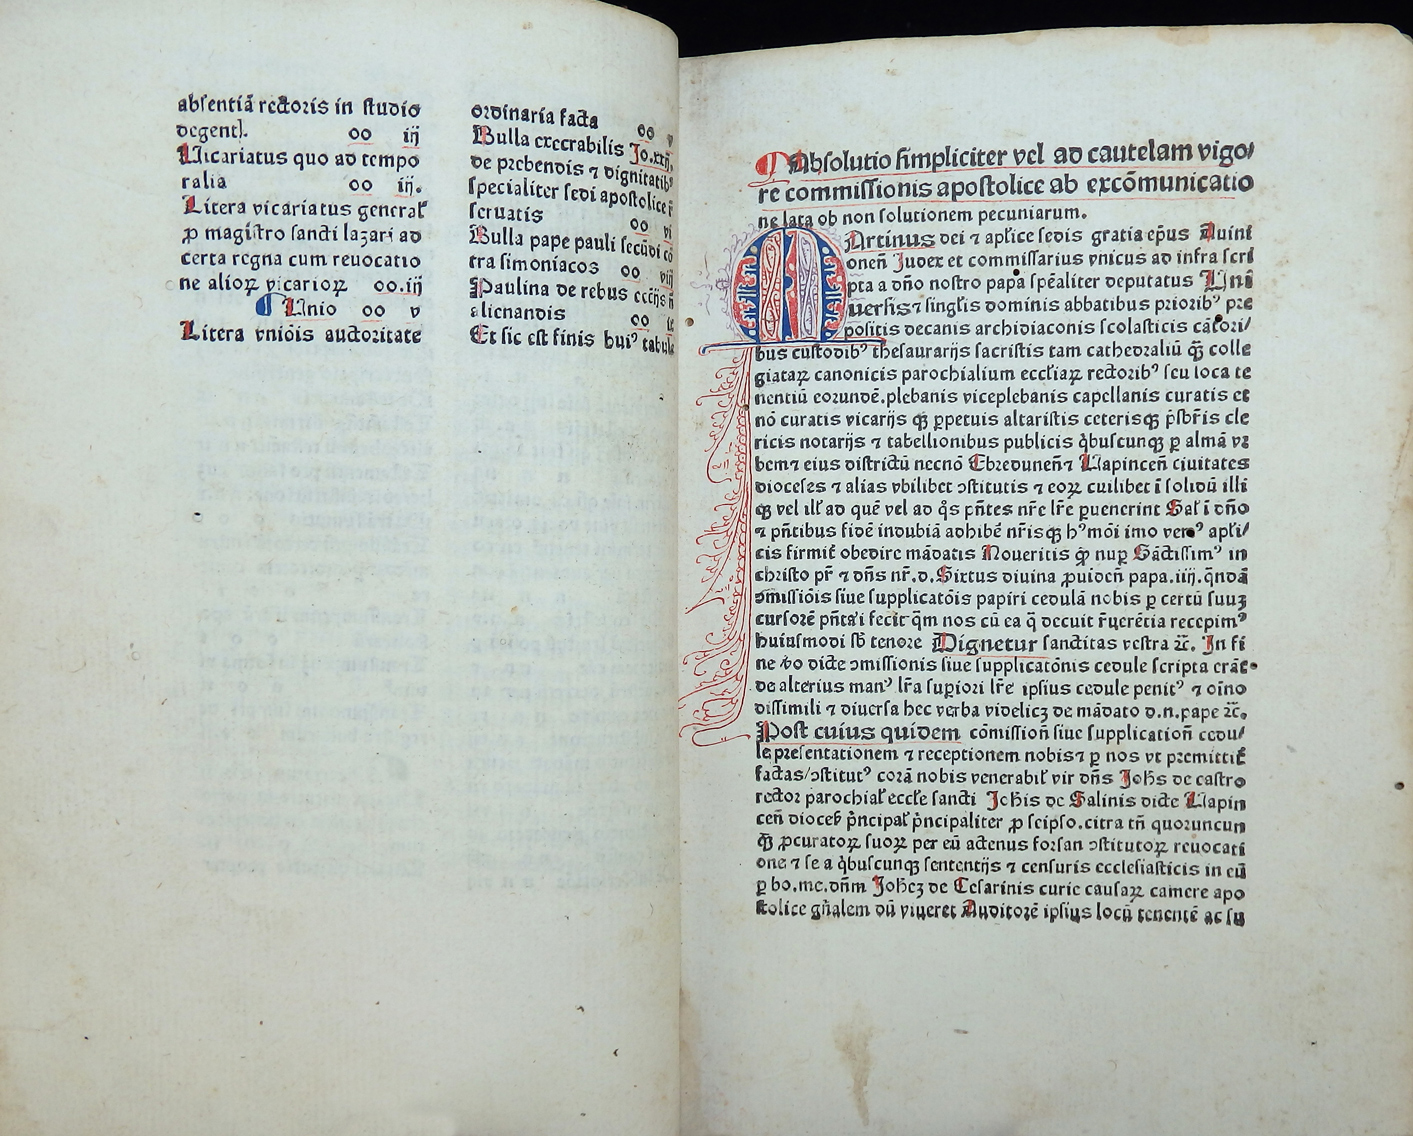 absentiã rectoris in studio
degentĺ. oo iij
Vicariatus quo ad tempo
ralia oo iij.
Litera vicariatus generaľ
ꝓ magistro sancti lazari ad
certa regna cum reuocatio
ne alioꝝ vicarioꝝ oo.iij
¶ Unio oo v
Litera vniõis auctoritate
ordinaria facta oo v
Bulla execrabilis Jo.xxij.
de prebendis ⁊ dignitatibꝰ
specialiter sedi apostolice r̃
seruatis oo vi
Bulla pape pauli secũdi cõ
tra simoniacos oo viij
Paulina de rebus ecc̃ijs ñ
alienandis oo ix
Et sic est finis huiꝰ tabule
¶ Absolutio simpliciter vel ad cautelam vigo/
re commissionis apostolice ab excõmunicatio
ne lata ob non solutionem pecuniarum.
MArtinus dei ⁊ apľice sedis gratia ep̃us Auini
oneñ Judex et commissarius vnicus ad infra scri
pta a dño nostro papa spẽaliter deputatus Uni
uersis ⁊ singľis dominis abbatibus prioribꝰ pre
positis decanis archidiaconis scolasticis cãtori/
bus custodibꝰ thesaurarijs sacristis tam cathedraliũ ꝙ̃ colle
giataꝝ canonicis parochialium eccľiaꝝ rectoribꝰ seu loca te
nentiũ eorundẽ.plebanis viceplebanis capellanis curatis et
nõ curatis vicarijs ꝙ ꝑpetuis altaristis ceterisꝙ p̃sbr̃is cle
ricis notarijs ⁊ tabellionibus publicis q̃buscunꝙ ꝑ almã vr
bem ⁊ eius districtũ necnõ Ebreduneñ ⁊ Vapinceñ ciuitates
dioceses ⁊ alias vbilibet ↄstitutis ⁊ eoꝝ cuilibet ĩ solidũ illi
ꝙ vel ilľ ad quẽ vel ad q̃s p̃ntes nr̃e lr̃e ꝑuenerint Saľ ĩ dño
⁊ p̃ntibus fidẽ indubiã adhibẽ nr̃isꝙ hꝰ mõi imo verꝰ apľi/
cis firmiť obedire mãdatis Noueritis ꝙ̃ nuꝑ Sãctissimꝰ in
christo pr̃ ⁊ dñs nr̃.d.Sixtus diuina ꝓuideñ papa.iiij.q̃ndã
ↄmissiõis siue supplicatõis papiri cedulã nobis ꝑ certũ suuꝫ
cursorẽ p̃ntãri fecit q̃m nos cũ ea q̃ decuit r̃uerẽtia recepimꝰ
huiusmodi sb̃ tenore Dignetur sanctitas vestra ⁊c̃. In fi
ne ṽo dicte ↄmissionis siue supplicatõnis cedule scripta erãt
de alterius manꝰ lr̃a suꝑiori lr̃e ipsius cedule penitꝰ ⁊ oĩno
dissimili ⁊ diuersa hec verba videlicꝫ de mãdato d.n.pape ⁊c̃.
Post cuius quidem cõmissioñ siue supplicatioñ cedu/
le presentationem ⁊ receptionem nobis ⁊ ꝑ nos vt premittiť
factas/ↄstitutꝰ corã nobis venerabiľ vir dñs Joh̃s de castro
rector parochiaľ eccľe sancti Joh̃is de Salinis dicte Vapin
ceñ dioceš p̃ncipaľ p̃ncipaliter ꝓ seipso.citra tñ quoruncun
ꝙ̃ ꝓcuratoꝝ suoꝝ per eũ actenus forsan ↄstitutoꝝ reuocati
one ⁊ se a q̃buscunꝙ sententijs ⁊ censuris ecclesiasticis in eũ
ꝑ bo.me.dñm Joh̃eꝫ de Cesarinis curie causaꝝ camere apo
stolice gñalem dũ viueret Auditorẽ ipsius locũ tenentẽ ac su